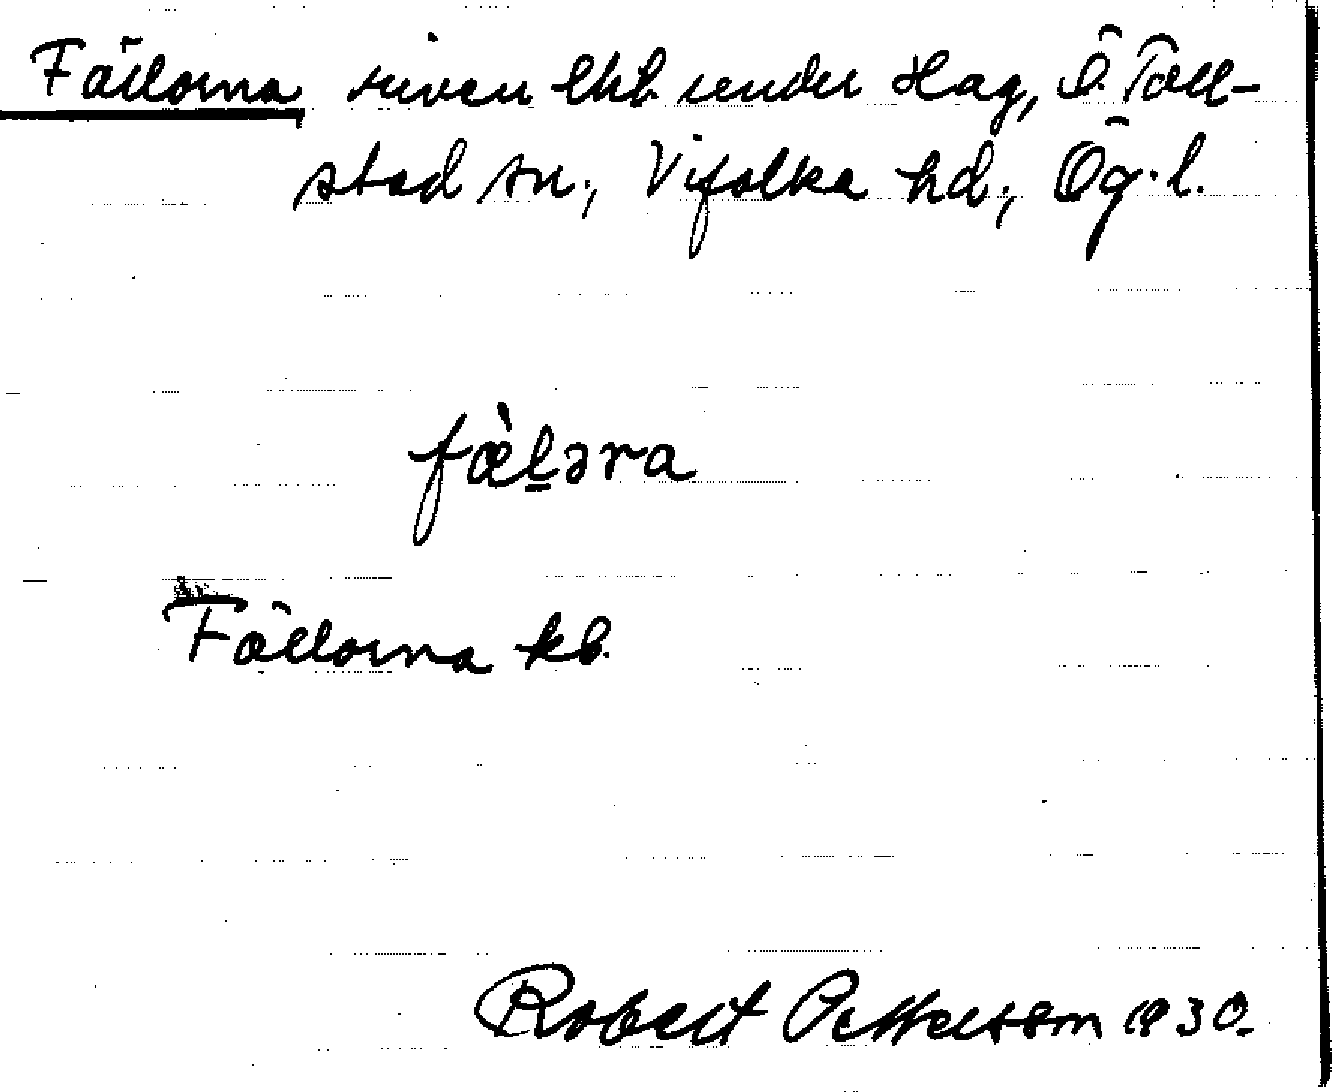 Fällorna riven lhb. under Hag, Ö. Toll-
stad sn., Vifolka hd., Ög. l.
fæ̀l̠əra
Fällorna kb.
Robert Pettersson 1930.